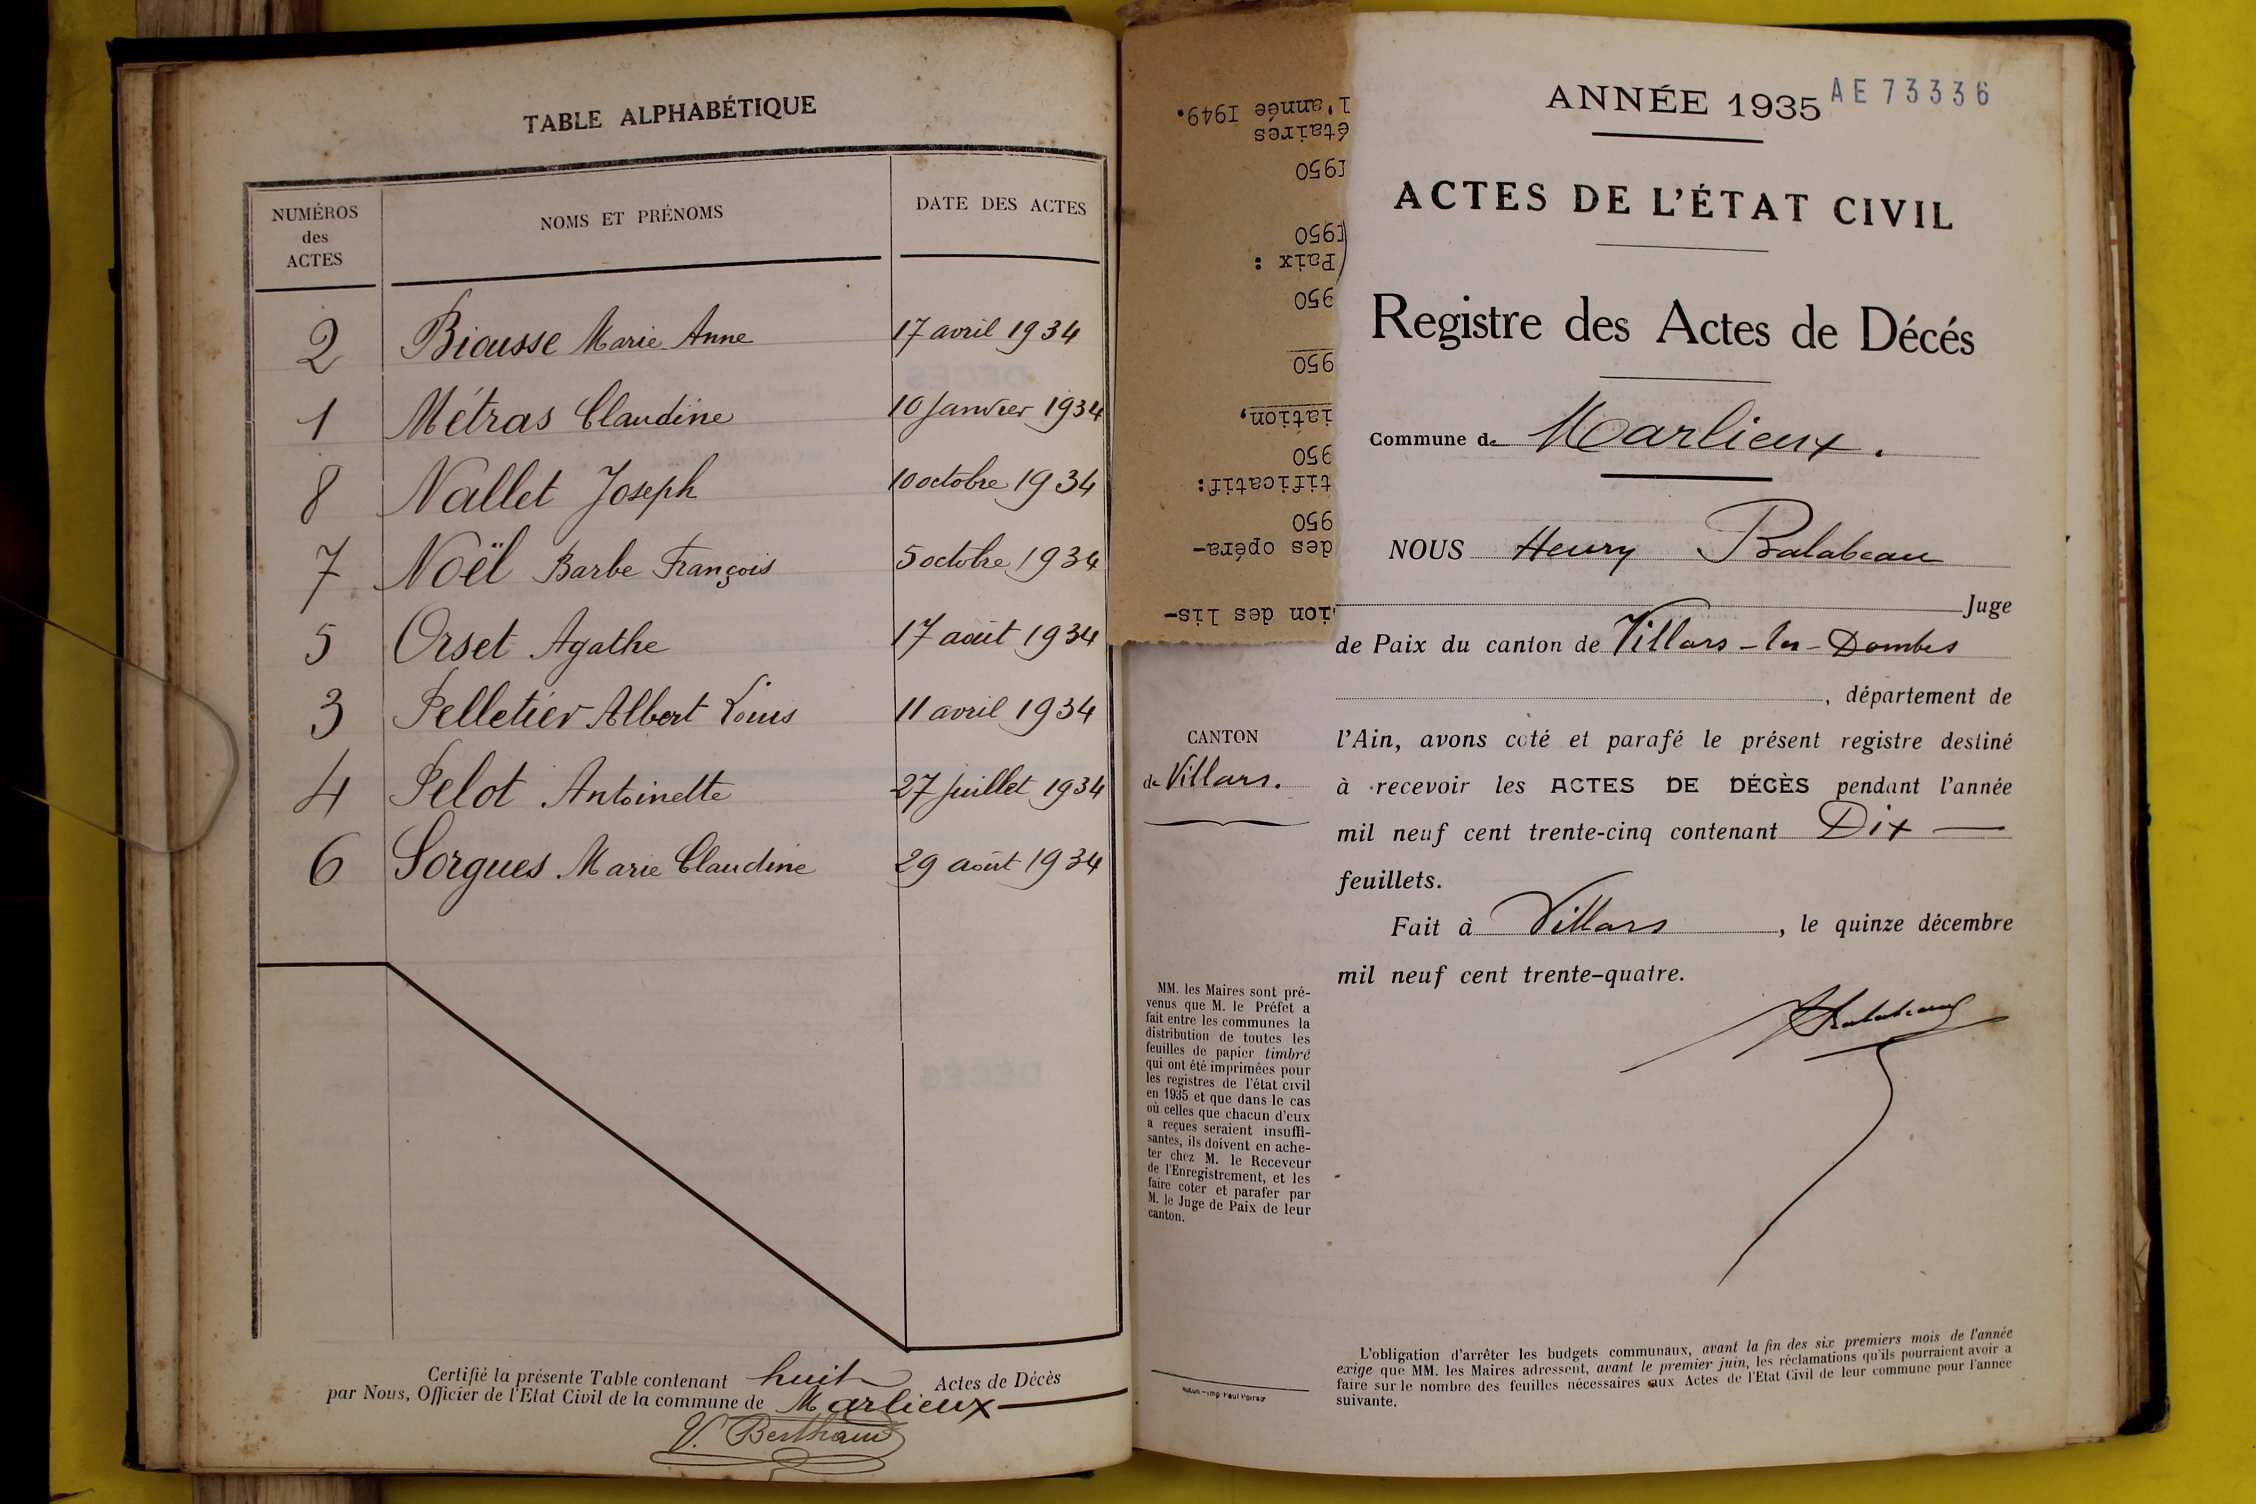 TABLE ALPHABÉTIQUE
NUMÉROS
des
ACTES
NOMS ET PRÉNOMS
DATE DES ACTES
2 Biausse Marie Anne 17 avril 1934
1 Métras Claudine 10 Janvier 1934
8 Nallet Joseph 10 octobre 1934
7 Noël Barbe François 5 octobre 1934
5 Orset Agathe 17 août 1934
3 Pelletier Albert Louis 11 avril 1934
4 Pelot Antoinette 27 Juillet 1934
6 Sorgues Marie Claudine 29 août 1934
Certifié la présente Table contenant huit Actes de Décès
par Nous, Officier de l'Etat Civil de la commune de Marlieux
V. Berthaud
l'année 1949.
étaires
1950
1950
(Paix :
950
950
iation,
950
tificatif:
950
des opéra-
ion des lis-
ANNÉE 1935 AE73336
ACTES DE L'ÉTAT CIVIL
Registre des Actes de Décés
Commune de Marlieux.
NOUS Henry Balabeau
Juge
de Paix du canton de Villars-les-Dombes
, département de
l'Ain, avons coté et parafé le présent registre destiné
à recevoir les ACTES DE DÉCÈS pendant l'année
mil neuf cent trente-cinq contenant Dix
feuillets.
Fait à Villars, le quinze décembre
mil neuf cent trente-quatre.
CANTON
de Villars.
MM. les Maires sont pré-
venus que M. le Préfet a
fait entre les communes la
distribution de toutes les
feuilles de papier timbré
qui ont été imprimées pour
les registres de l'état civil
en 1935 et que dans le cas
où celles que chacun d'eux
a reçues seraient insuffi-
santes, ils doivent en ache-
ter chez M. le Receveur
de l'Enregistrement, et les
faire coter et parafer par
M. le Juge de Paix de leur
canton.
L'obligation d'arrêter les budgets communaux, avant la fin des six premiers mois de l'année
exige que MM. les Maires adressent, avant le premier juin, les réclamations qu'ils pourraient avoir à
faire sur le nombre des feuilles nécessaires aux Actes de l'Etat Civil de leur commune pour l'année
suivante.